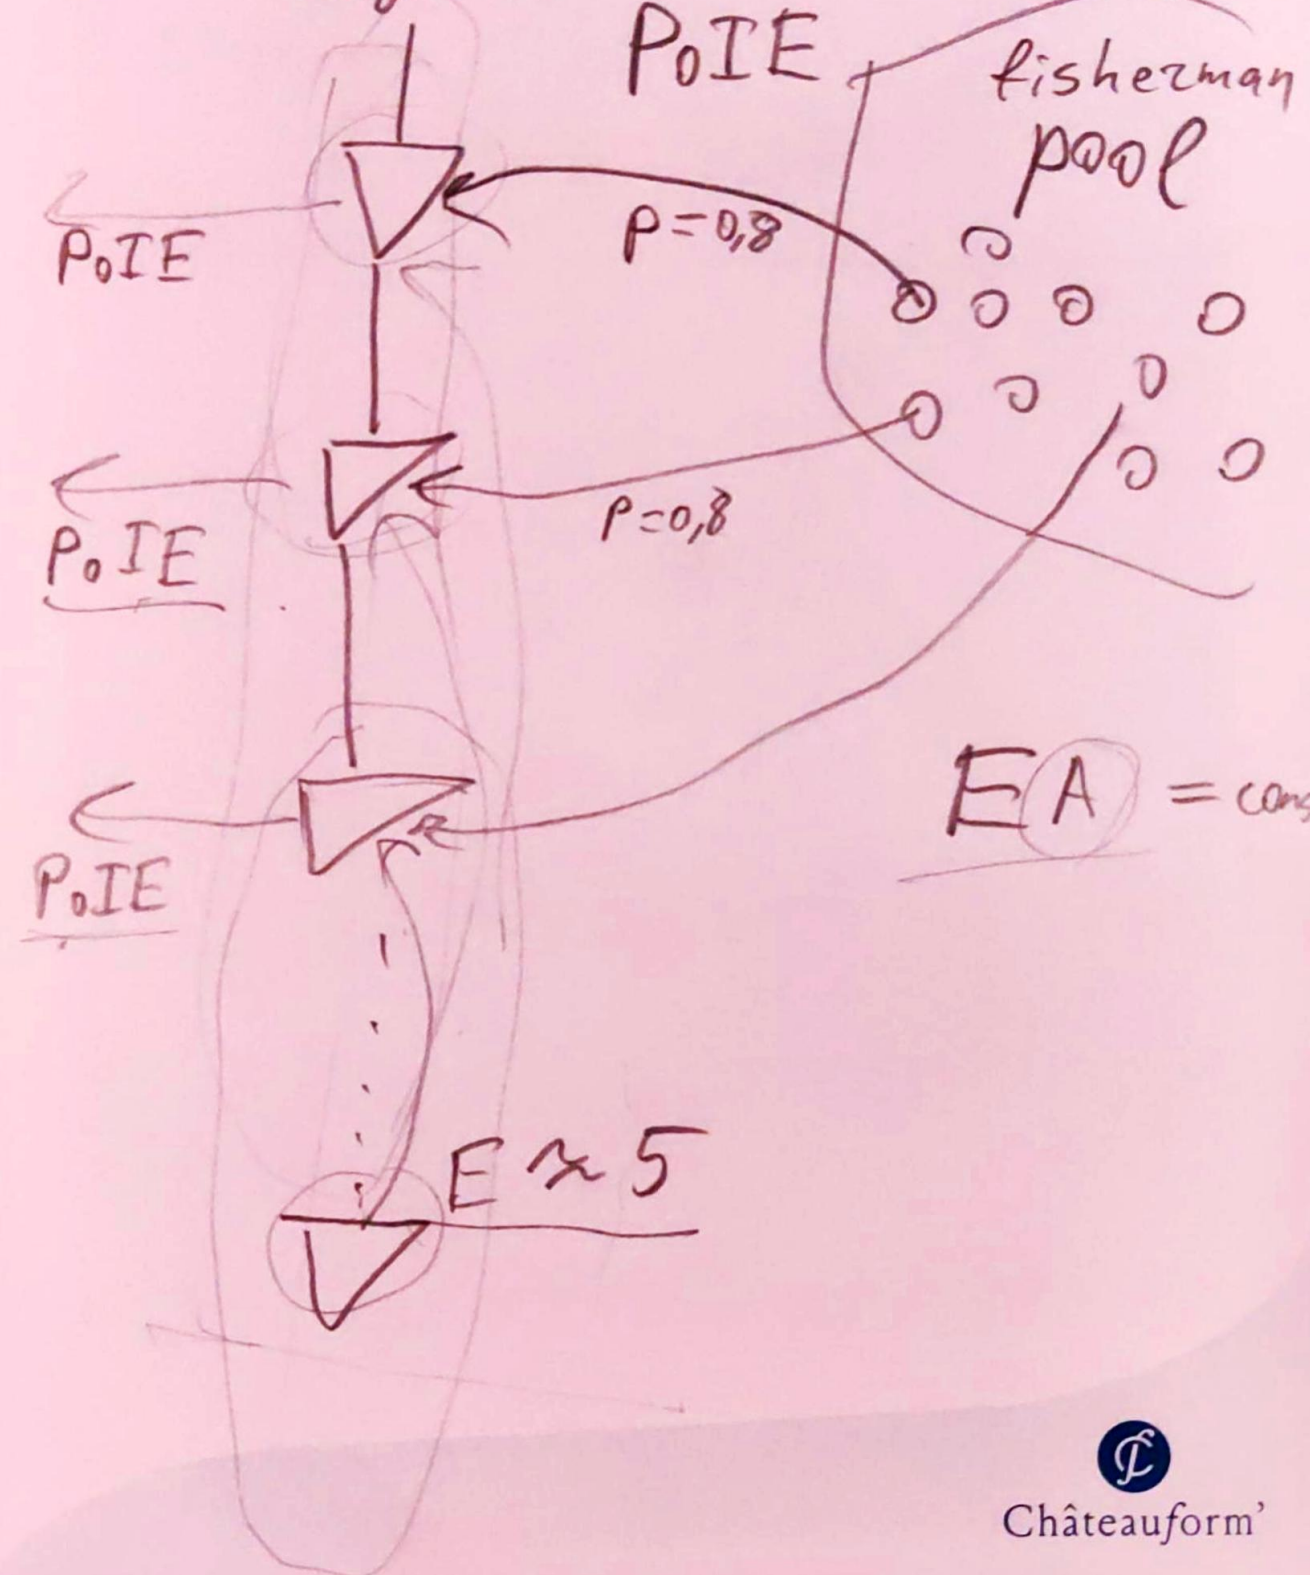 PoIE
fisherman
pool
PoIE
p=0,8
PoIE
p=0,8
EA = cons
PoIE
E ≈ 5
Châteauform'